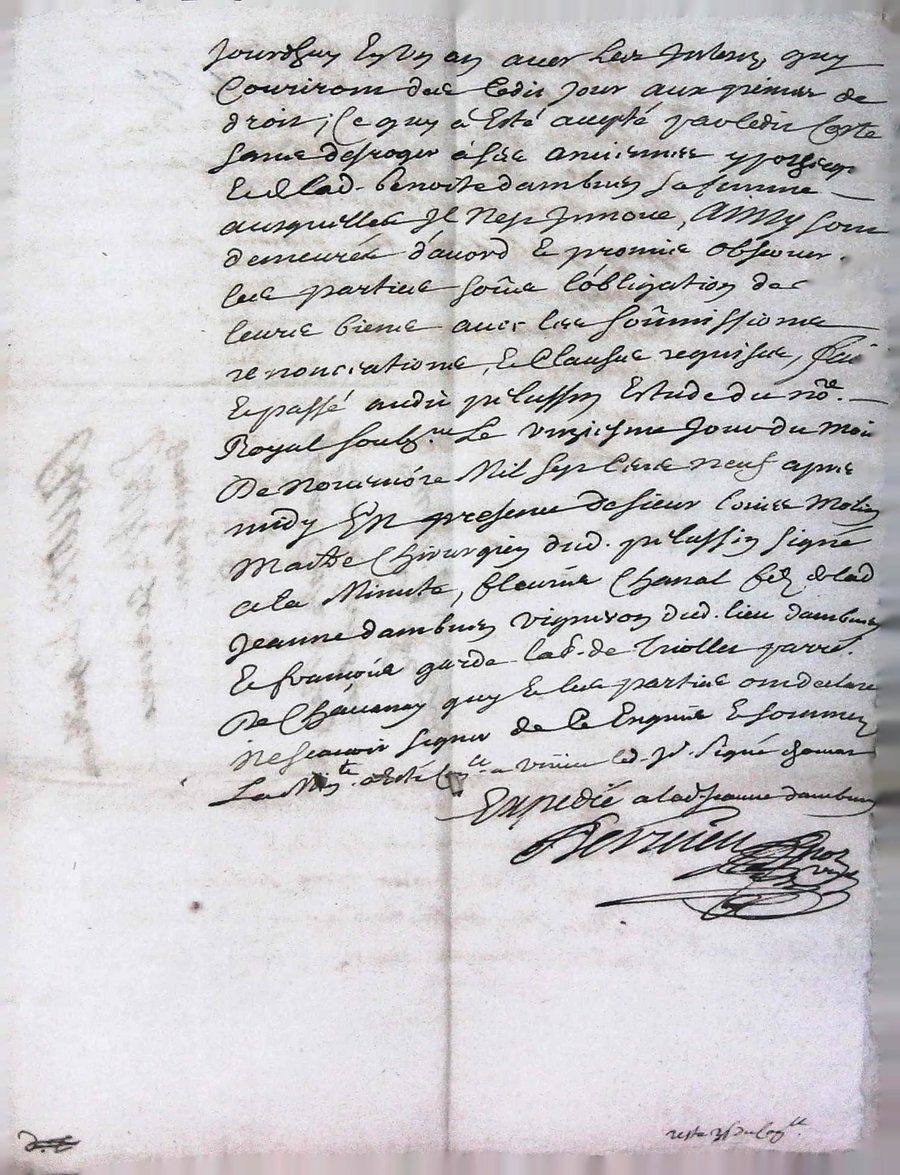 Jourdhuy En Un an avec les Interez quy
Couriront des Cedit Jour aux prémier de
droit; Ce quy a Esté accepté par ledit Coste
sans desroger à ses anciennes ypotheqs
Et de lad. benoite dambuen sa femme
ausquelles Jl Nest Jnnové, Ainsy sont
demeurés d'acord Et promis observer.
les parties sous l'obligation des
leurs biens avec les soûmissions
renonciations, Et Clauses requises, fai
Et passé audit pelussin Estude du no.re
Royal soubz.ne Le vingiesme Jour du Moi
De Novembre Mil Sept Cens neuf apres
midy En presence de sieur louis Molin
Maitre Chirurgien dud. pelussin signé
a la Minute, fleurie Chanal filz de lad
Jeanne dambuen vigneron dud. lieu dambuen
Et françois garde lab.r de Triollet parré.
De Chavanay quy Et les parties ont declaré
ne sçavoir signer de Ce Enquis Et sommez
La Min.te a Esté
Expedié a lad Jeanne dambuen